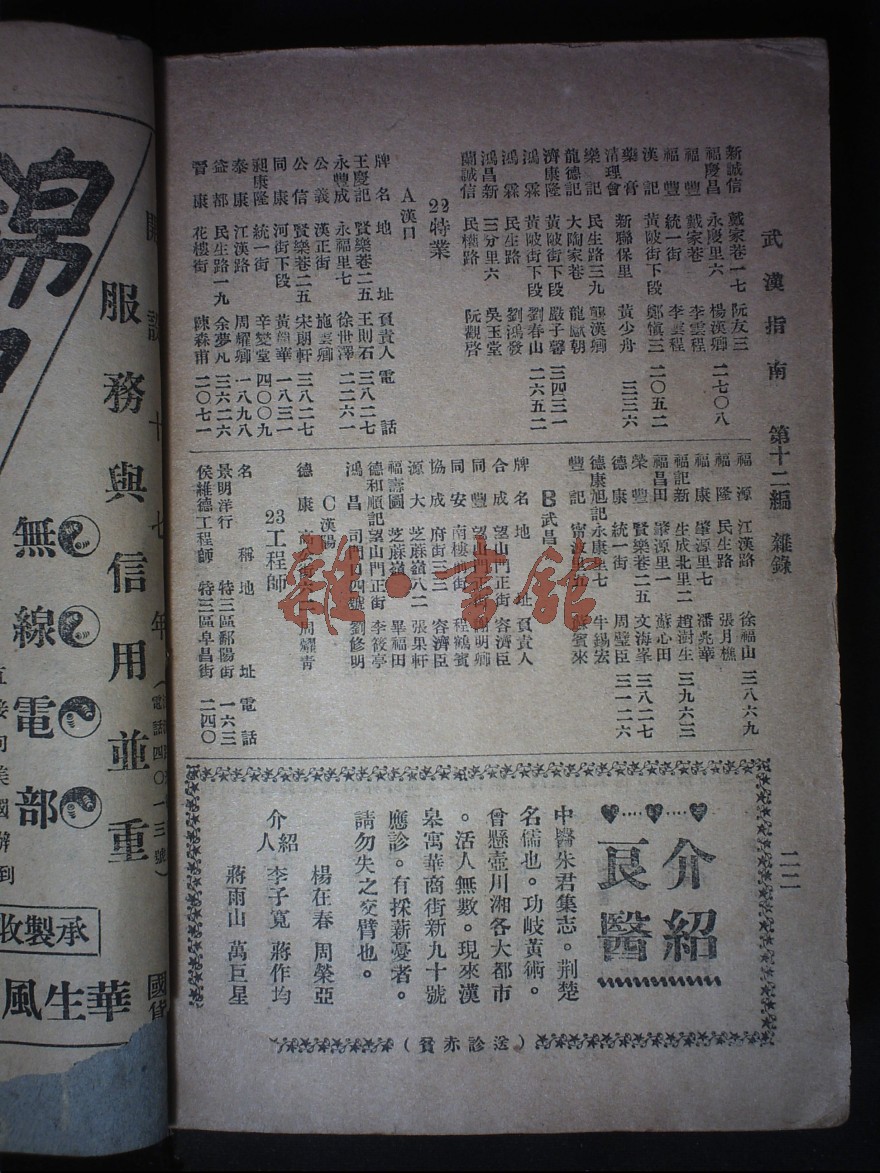 武漢指南 第十二編 雜錄
二二
新誠信 戴家巷一七 阮友三
福慶昌 永慶里六 楊漢卿 二七〇八
福豐 戴家巷 李雲程
福豐 統一街 李雲程
漢記 黃陂街下段 鄭慎三 二〇五二
藥膏清理會 新聯保里 黃少舟 三三六
樂記 民生路三九 龔漢卿
龍德記 大陶家巷 龍獻朝
濟康隆 黃陂街下段 嚴子馨 三四三一
鴻霖 黃陂街下段 劉春山 二六五二
鴻霖 民生路 劉鴻發
鴻昌新 三分里六 吳玉堂
蘭誠信 民權路 阮觀啓
22特業
A漢口
牌名 地址 負責人 電話
王慶記 賢樂巷二五 王則石 三八二七
永豐成 永福里七 徐世澤 二二六一
公義 漢正街 施雲卿
公信 賢樂巷二五 宋朗軒 三八二七
同康 河街下段 黃龍華 一八三一
昶康隆 統一街 辛燮堂 四〇〇九
泰康 江漢路 周耀卿 一八九八
益都 民生路一九 余夢凡 三六二六
晉康 花樓街 陳森甫 二〇七一
福源 江漢路 徐福山 三八六九
福隆 民生路 張月樵
福康 肇源里七 潘兆華
福記新 生成北里二 趙樹生 三九六三
福昌田 肇源里一 蘇心田
榮豐 賢樂巷二五 文海峯 三八二七
德康 統一街 周璧臣 三一二六
德康旭記 永康里七 牛錫宏
豐記 寗波里五 賓來
B武昌
牌名 地址 負責人
合成 望山門正街 容濟臣
同豐 望山門正街 明卿
同安 南樓前街 程鶴賓
協成 府街三三 容濟臣
源大 芝麻嶺八二 張果軒
福壽圖 芝麻嶺 畢福田
德和順記 望山門正街 李筱亭
鴻昌 司門口四號 劉修明
C漢陽
德康 周耀青
23工程師
名稱 地址 電話
景明洋行 特三區鄱陽街 一六三
侯維德工程師 特三區阜昌街 二四〇
介紹
良醫
中醫朱君集志。荆楚
名儒也。功岐黃術。
曾懸壺川湘各大都市
。活人無數。現來漢
皋寓華商街新九十號
應診。有採薪憂者。
請勿失之交臂也。
介紹人
楊在春 周榮亞
李子寬 蔣作均
蔣雨山 萬巨星
（送診赤貧）
雜·書館
錦
開設十七年
（電話四〇一三號）
服務與信用並重
無線電部
承製收
國貨
華生風